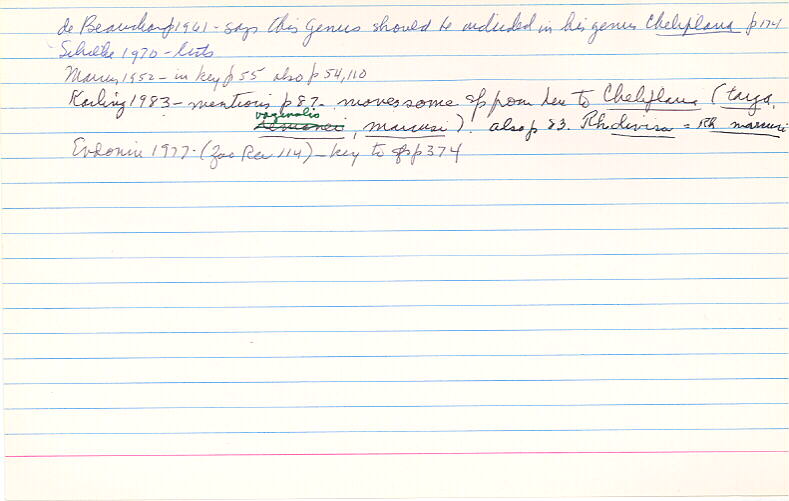 de Beauchamp 1961 - says this genus should be included in his genus Cheliplana p 174
Schilke 1970 - lists
Marcus 1952 - in key p 55 also p 54, 110
Karling 1983 - mentions p 87. moves some sp from here to Cheliplana (taiga,
vaginalis
, marcusi). also p 83. Rh divisa = Rh marcusi
Evdonin 1977 - (Zoo Rec 114) - key to sp p 374